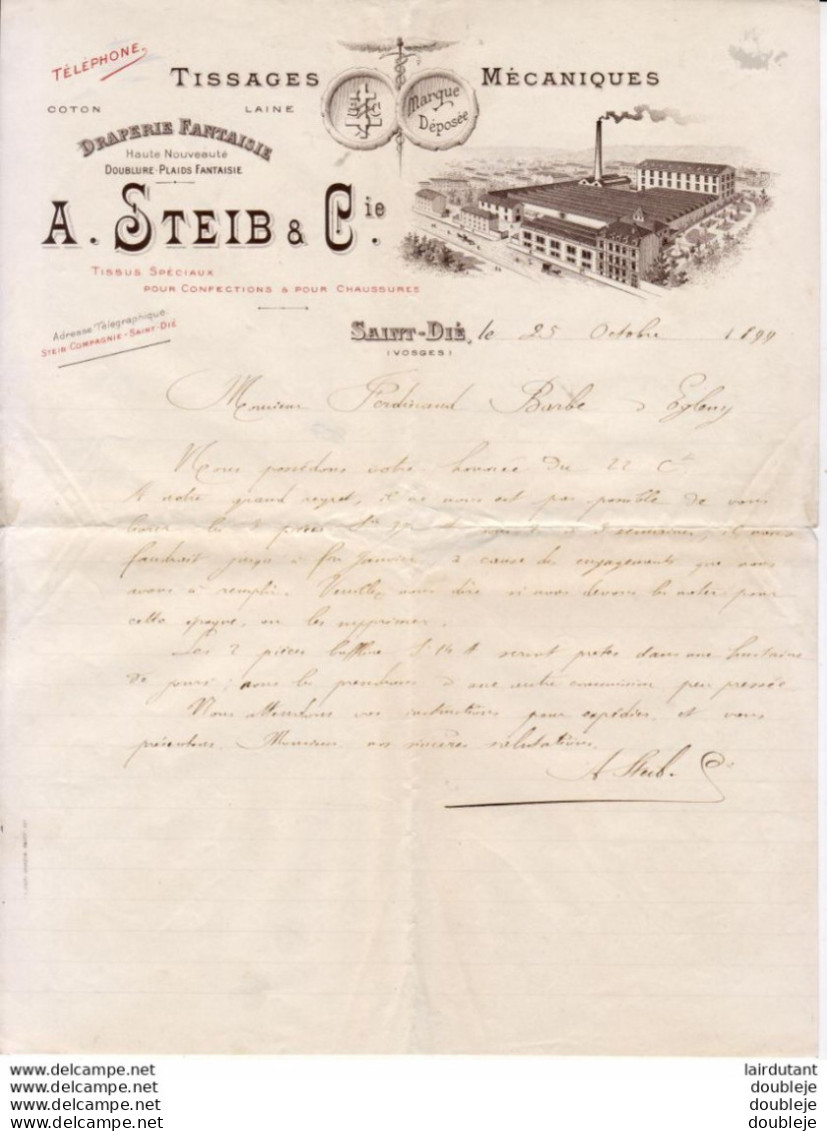 TÉLÉPHONE.
TISSAGES MÉCANIQUES
COTON LAINE
Marque Déposée
DRAPERIE FANTAISIE
Haute Nouveauté
DOUBLURE-PLAIDS FANTAISIE
A. STEIB & Cie.
TISSUS SPÉCIAUX
POUR CONFECTIONS & POUR CHAUSSURES
Adresse Télégraphique
STEIB-COMPAGNIE-SAINT-DIÉ
SAINT-DIÉ, le 25 Octobre 1899
(VOSGES)
Monsieur Ferdinand Barbe à Egleny
Nous possédons votre honorée du 22 Ct
A notre grand regret, il ne nous est pas possible de vous
les pièces 3 semaines, il nous
faudrait jusqu'à fin Janvier à cause des engagements que nous
avons à remplir. Veuillez nous dire si nous devons les noter pour
cette époque, ou les supprimer.
Les 2 pièces 14 seront prêtes dans une huitaine
de jours; nous les prendrons à une autre commission peu pressée
Nous attendons vos instructions pour expédier, et vous
présentons, Monsieur, nos sincères salutations.
A Steib. Ce
delcampe.net
delcampe.net
delcampe.net
delcampe.net
lairdutant
doubleje
doubleje
doubleje